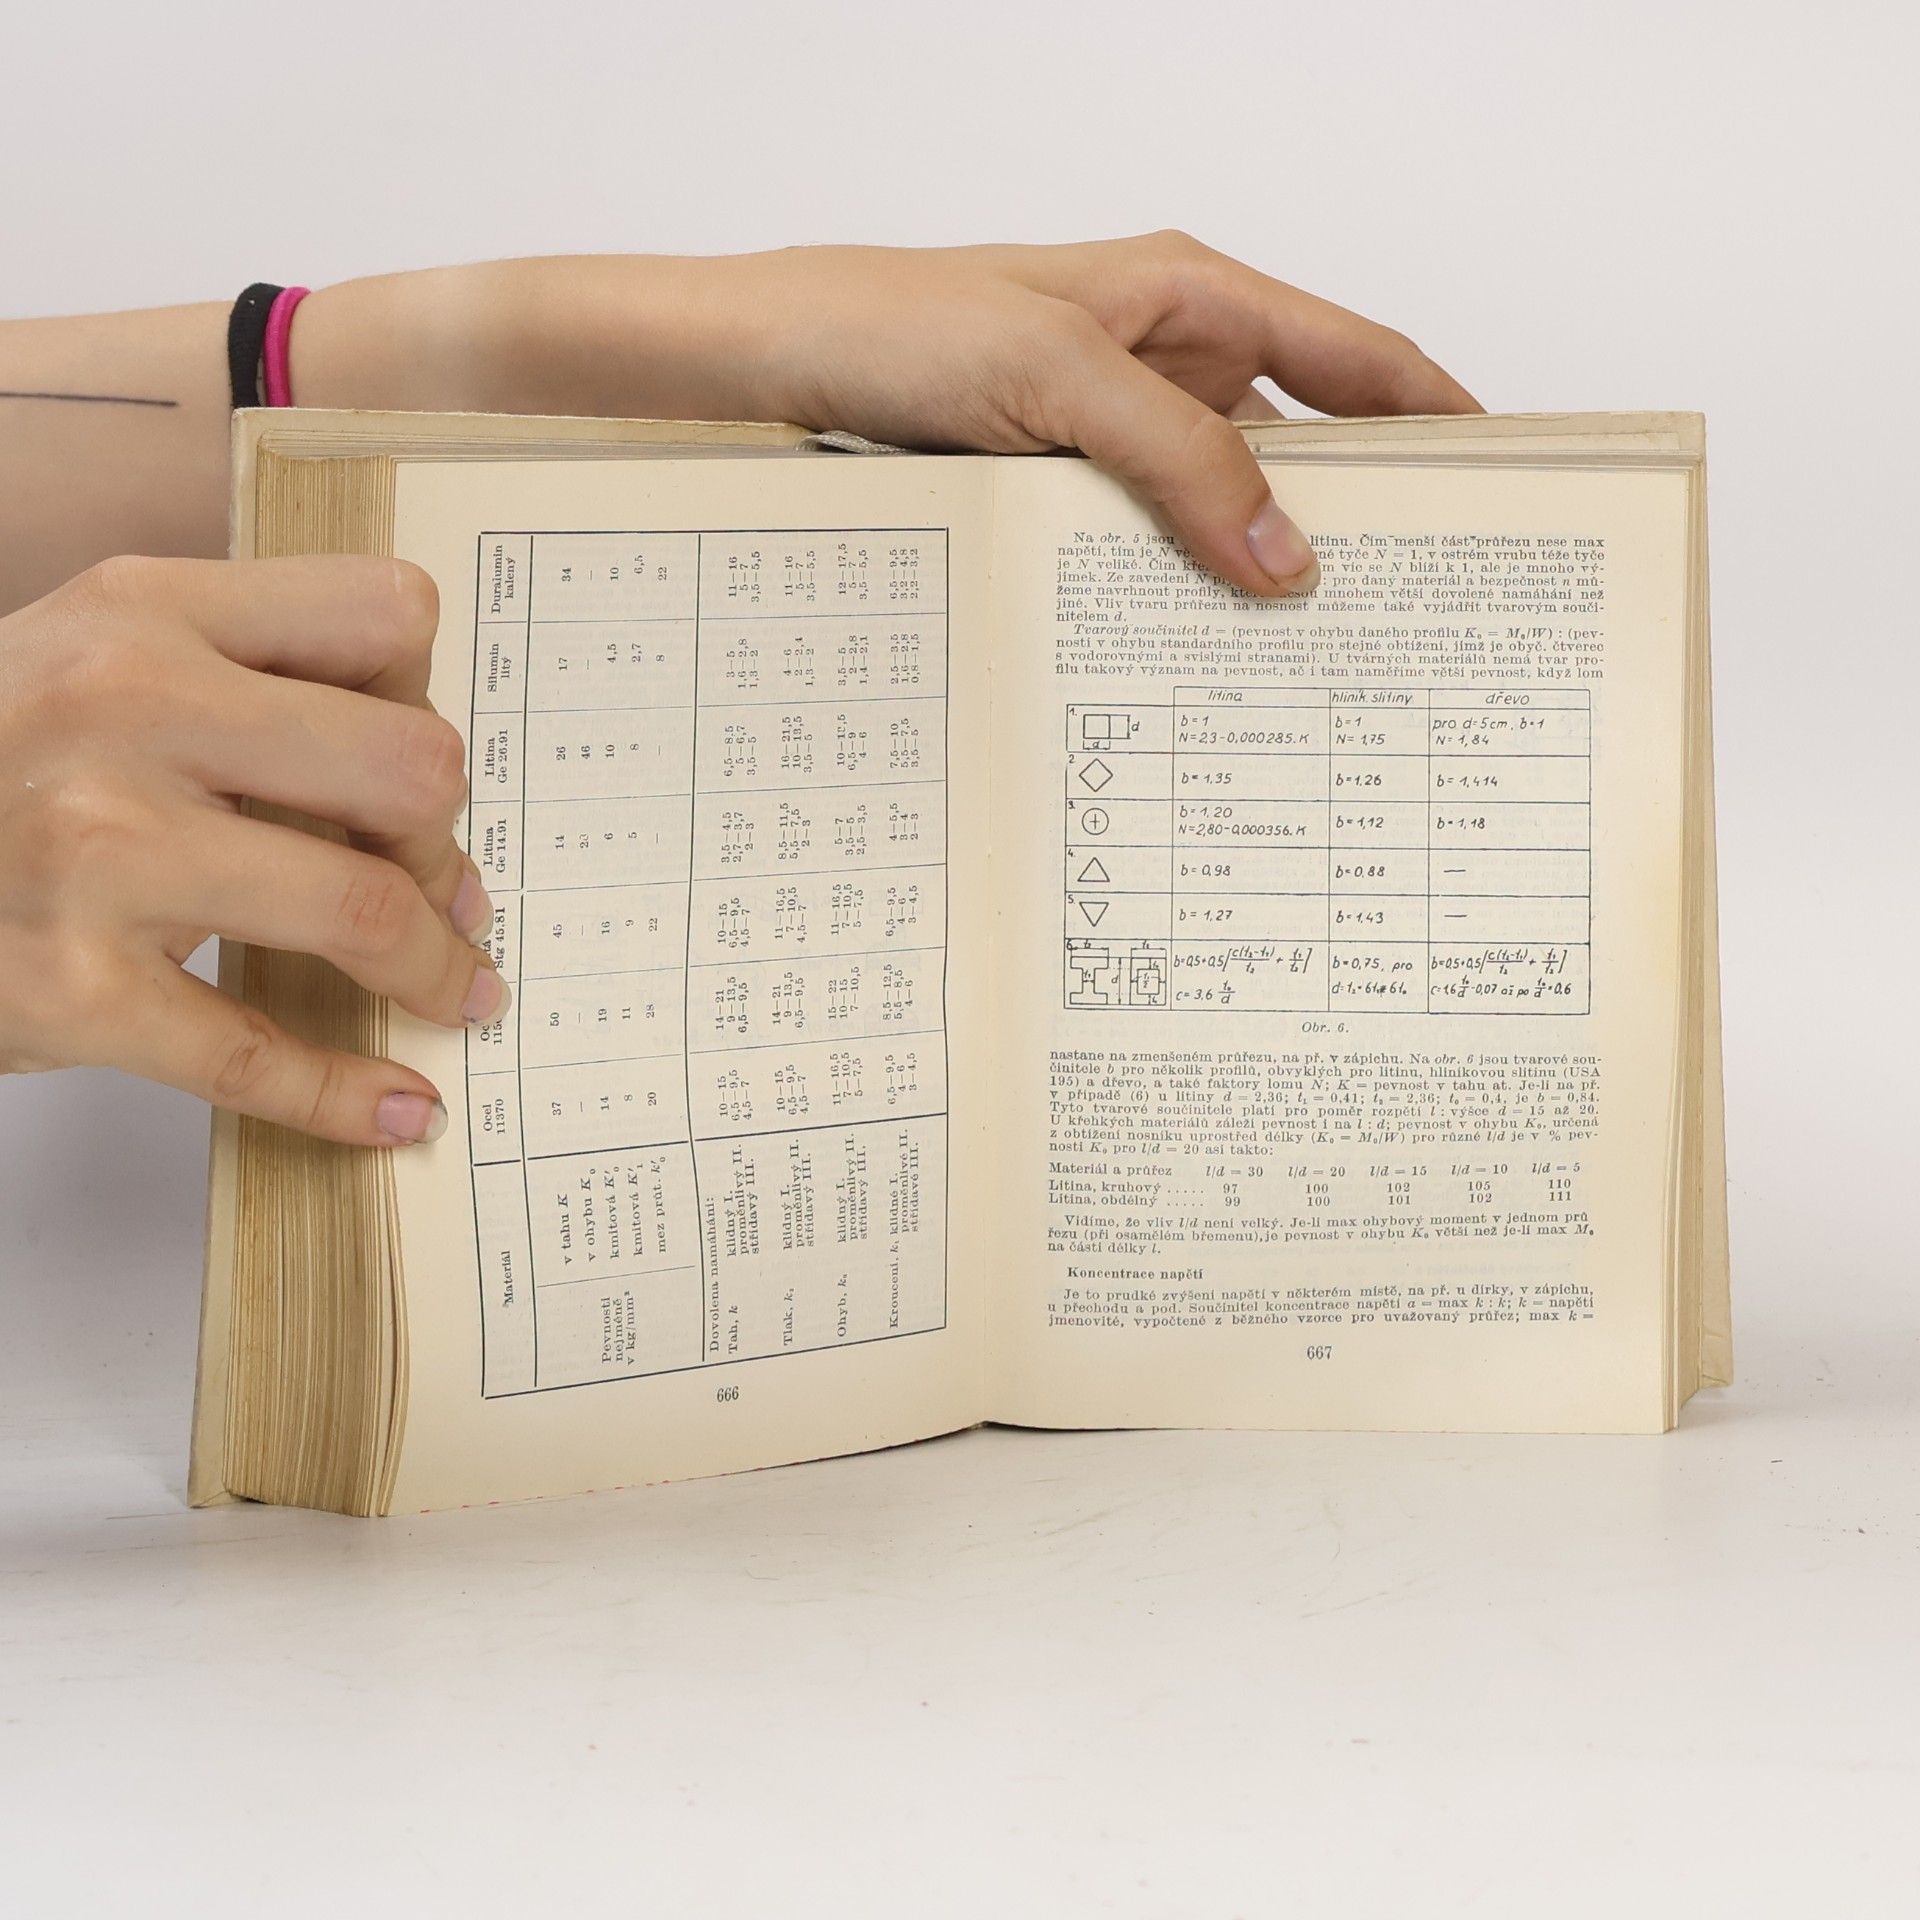 Materiál
Ocel 11370
Litina Ge 14.91
Litina Ge 26.91
Silumin litý
Duralumin kalený
Pevnosti nejméně v kg/mm²
v tahu K 37 50 45 14 26 17 34
v ohybu K₀ — — — 28 46 — —
kmitová K'₀ 14 19 16 6 10 4,5 10
kmitová K'₁ 8 11 9 5 8 2,7 6,5
mez průt. k'₀ 20 28 22 — — 8 22
Dovolena namáhání:
Tah, k
klidný I. 10—15 14—21 10—15 3,5—4,5 6,5—8,5 3—5 11—16
proměnlivý II. 6,5—9,5 9—13,5 6,5—9,5 2,7—3,7 5—6,7 1,6—2,8 5—7
střídavý III. 4,5—7 6,5—9,5 4,5—7 2—3 3,5—5 1,3—2 3,5—5,5
Tlak, k₁
klidný I. 10—15 14—21 11—16,5 8,5—11,5 16—21,5 4—6 11—16
proměnlivý II. 6,5—9,5 9—13,5 7—10,5 5,5—7,5 10—13,5 2—2,4 5—7
střídavý III. 4,5—7 6,5—9,5 4,5—7 2—3 3,5—5 1,3—2 3,5—5,5
Ohyb, k₀
klidný I. 11—16,5 15—22 11—16,5 5—7 10—12,5 3,5—5 12—17,5
proměnlivý II. 7—10,5 10—15 7—10,5 3,5—5 6,5—9 2—2,8 5—7
střídavý III. 5—7,5 7—10,5 5—7,5 2,5—3,5 4—6 1,4—2,1 3,5—5,5
Kroucení, k₁ klidné I. 6,5—9,5 8,5—12,5 6,5—9,5 4—5,5 7,5—10 2,5—3,5 6,5—9,5
proměnlivé II. 4—6 5,5—8,5 4—6 3—4 5,5—7,5 1,6—2,8 3,2—4,8
střídavé III. 3—4,5 4—6 3—4,5 2—3 3,5—5 0,8—1,5 2,2—3,2
666
Na obr. 5 jsou litinu. Čím menší část průřezu nese max
napětí, tím je N né tyče N = 1, v ostrém vrubu téže tyče
je N veliké. Čím víc se N blíží k 1, ale je mnoho vý-
jimek. Ze zavedení N : pro daný materiál a bezpečnost n mů-
žeme navrhnout profily, které nesou mnohem větší dovolené namáhání než
jiné. Vliv tvaru průřezu na nosnost můžeme také vyjádřit tvarovým souči-
nitelem d.
Tvarový součinitel d = (pevnost v ohybu daného profilu K₀ = M₀/W) : (pev-
nosti v ohybu standardního profilu pro stejné obtížení, jímž je obyč. čtverec
s vodorovnými a svislými stranami). U tvárných materiálů nemá tvar pro-
filu takový význam na pevnost, ač i tam naměříme větší pevnost, když lom
litina hliník. slitiny dřevo
1. d d b=1 b=1 pro d=5cm. b=1
N=2,3-0,000285.K N=1,75 N=1,84
2. b=1,35 b=1,26 b=1,414
3. b=1,20 b=1,12 b=1,18
N=2,80-0,000356.K
4. b=0,98 b=0,88 —
5. b=1,27 b=1,43 —
6. b=0,5+0,5[c(t₂-t₁)/t₂ + t₁/t₂] b=0,75, pro b=0,5+0,5[c(t₂-t₁)/t₂ + t₁/t₂]
c=3,6 t₀/d c=1,6 t₀/d-0,07 až po t₀/d=0,6
Obr. 6.
nastane na zmenšeném průřezu, na př. v zápichu. Na obr. 6 jsou tvarové sou-
činitele b pro několik profilů, obvyklých pro litinu, hliníkovou slitinu (USA
195) a dřevo, a také faktory lomu N; K = pevnost v tahu at. Je-li na př.
v případě (6) u litiny d = 2,36; t₁ = 0,41; t₂ = 2,36; t₀ = 0,4, je b = 0,84.
Tyto tvarové součinitele platí pro poměr rozpětí l : výšce d = 15 až 20.
U křehkých materiálů záleží pevnost i na l : d; pevnost v ohybu K₀, určená
z obtížení nosníku uprostřed délky (K₀ = M₀/W) pro různé l/d je v % pev-
nosti K₀ pro l/d = 20 asi takto:
Materiál a průřez l/d = 30 l/d = 20 l/d = 15 l/d = 10 l/d = 5
Litina, kruhový ..... 97 100 102 105 110
Litina, obdélný ..... 99 100 101 102 111
Vidíme, že vliv l/d není velký. Je-li max ohybový moment v jednom prů
řezu (při osamělém břemenu), je pevnost v ohybu K₀ větší než je-li max M₀
na části délky l.
Koncentrace napětí
Je to prudké zvýšení napětí v některém místě, na př. u dírky, v zápichu,
u přechodu a pod. Součinitel koncentrace napětí a = max k : k; k = napětí
jmenovité, vypočtené z běžného vzorce pro uvažovaný průřez; max k =
667